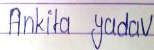 Ankita yadav